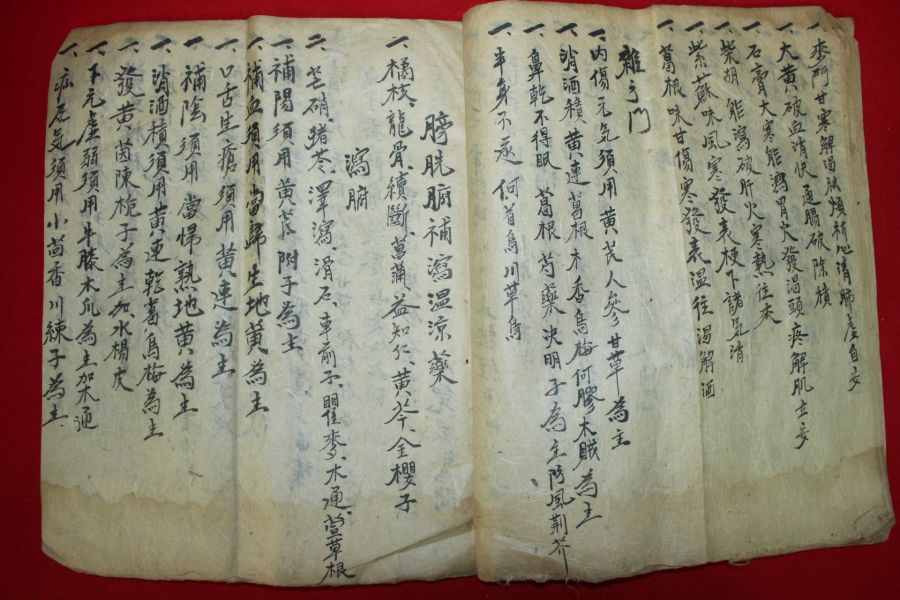 一 麥門甘寒解渴祛煩補心清肺虛自安
一 大黃破血消快通腸破除積
一 石膏大寒能瀉胃火發渴頭疼解肌立安
一 柴胡能瀉破肝火寒熱往來
一 紫蘇味風寒發表梗下諸氣消
一 葛根味甘傷寒發表溫往渴解酒
雜症門
一 內傷元氣須用黃芪人參甘草為主
一 消酒積黃連葛根木香烏梅阿膠木賊為主
一 鼻乾不得眠葛根芍藥決明子為主防風荊芥
一 半身不遂何首烏川草烏
膀胱腑補瀉溫涼藥
一 橘核、龍骨、續斷、菖蒲、益知仁、黃芩、金櫻子
瀉腑
二 芒硝、豬苓、澤瀉、滑石、車前子、瞿麥、木通、萱草根
一 補陽須用黃芪附子為主
一 補血須用當歸生地黃為主
一 口舌生瘡須用黃連為主
一 補陰須用當歸熟地黃為主
一 消酒積須用黃連乾葛烏梅為主
一 發黃茵陳梔子為主加水楊皮
一 下元虛弱須用牛膝木瓜為主加木通
一 疝氣須用小茴香川練子為主